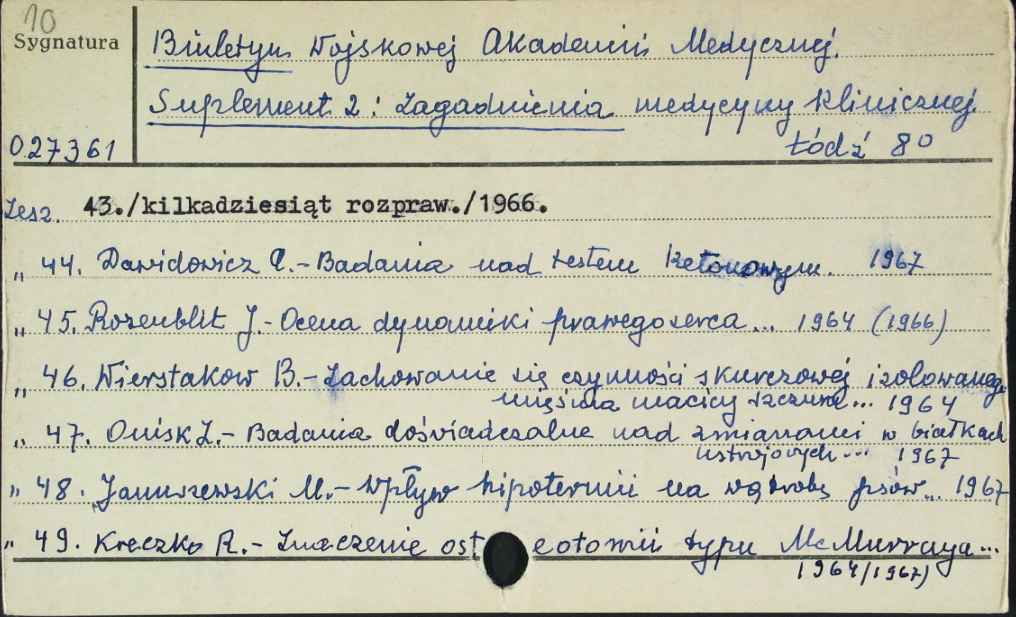 10
Sygnatura
Biuletyn Wojskowej Akademii Medycznej.
Suplement 2: Zagadnienia medycyny klinicznej
027361
Łódź 8⁰
Zesz. 43./kilkadziesiąt rozpraw./1966.
„ 44. Dawidowicz A.- Badania nad testem ketonowym. 1967
„ 45. Rozenblit J.- Ocena dynamiki prawego serca... 1964 (1966)
„ 46. Wierstakow B.- Zachowanie się czynności skurczowej izolowaneg.
mięśnia macicy szczura... 1964
„ 47. Onisk Z.- Badania doświadczalne nad zmianami w białkach
ustrojowych... 1967
„ 48. Januszewski M.- Wpływ hipotermii na wątrobę psów... 1967
„ 49. Kreczko R.- Znaczenie ost eotomii typu McMurraya...
1964/1967)